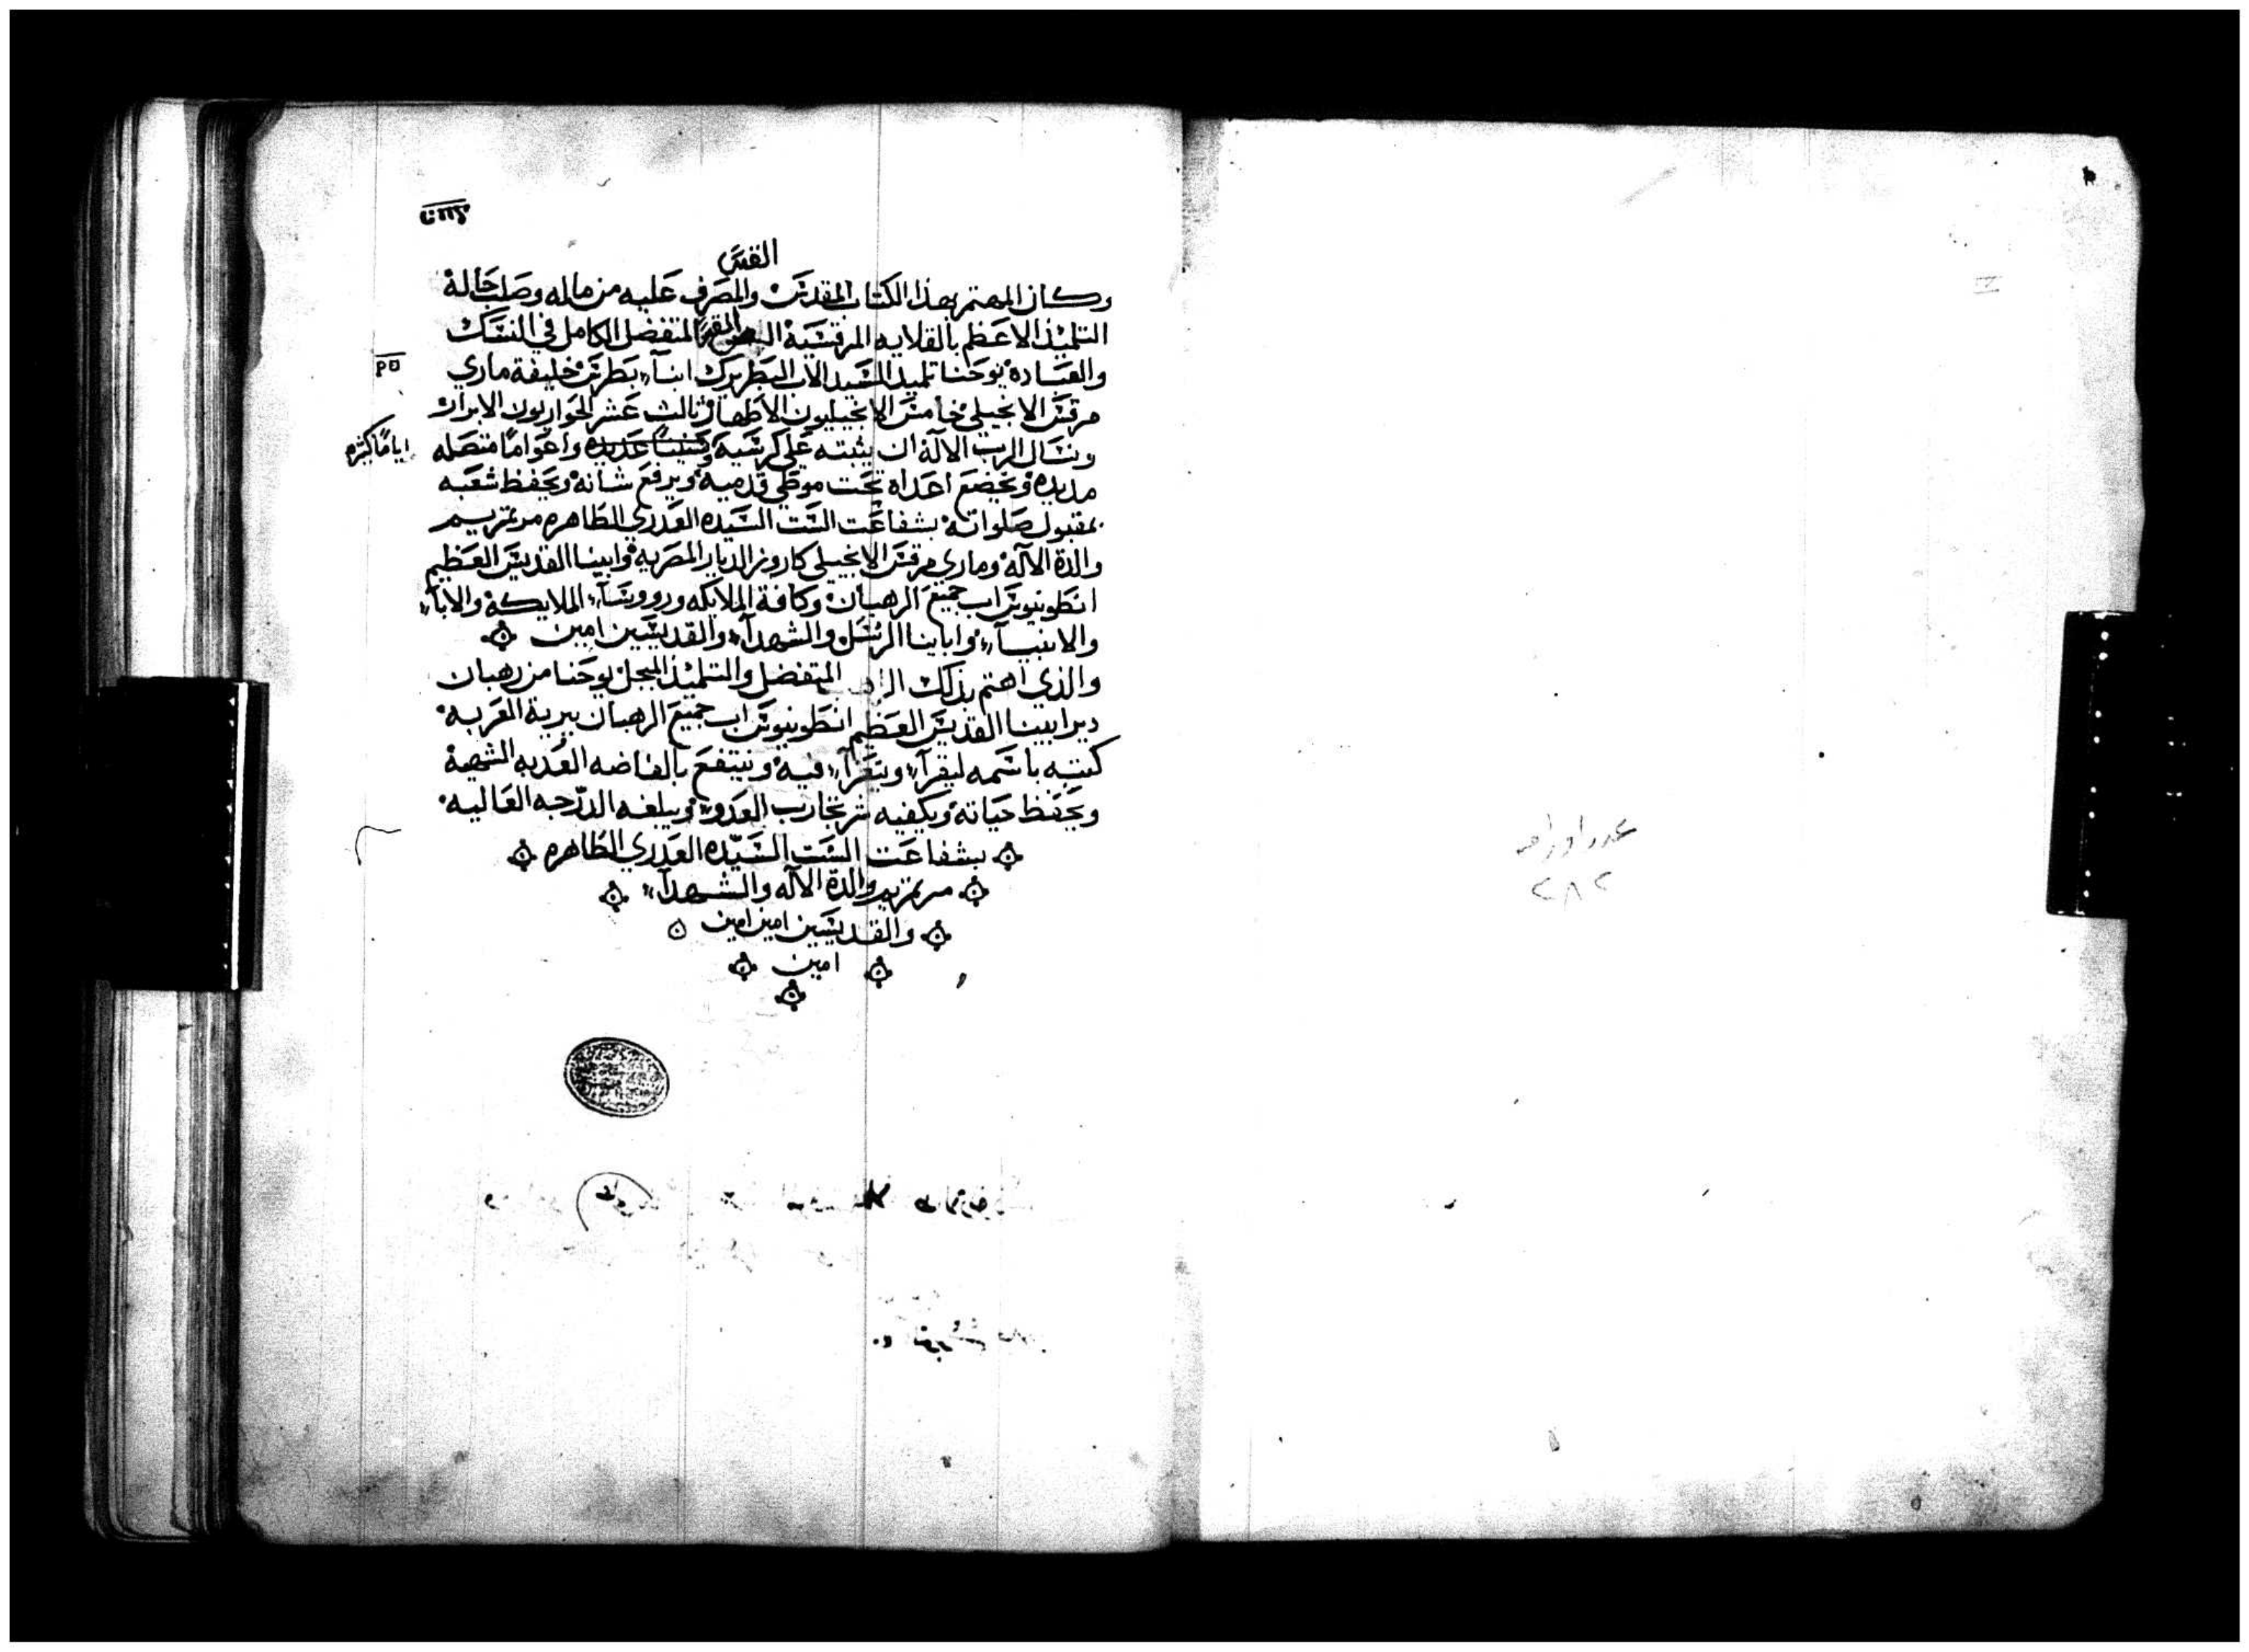 القس
وكان المهتم بهذا الكتاب المقدس والمصرف عليه من ماله وصلب حاله
التلميذ الاعظم بالقلايه المرقسية المتفضل الكامل في النسك
والعبادة يوحنا تلميذ السيد الاب البطريرك انبآء بطرس خليفة ماري
مرقس الانجيلي خامس الانجيليون الاطهار ثالث عشر الحواريون الابرار
ونسال الرب الاله ان يثبته على كرسيه وسنينًا عديده واعوامًا متصله
اياما كثيره
مديدة ويخضع اعداه تحت موطي قدميه ويرفع شانه ويحفظ شعبه
بمقبول صلواته بشفاعت الست السيده العدري الطاهره مرتمريم
والدة الاله وماري مرقس الانجيلي كاروز الديار المصريه وابينا القديس العظيم
انطونيوس اب جميع الرهبان وكافة الملايكه ورووسآء الملايكة والابآء
والانبيآء واباينا الرسل والشهدآء والقديسين امين
والذي اهتم بذلك المتفضل والتلميذ المبجل يوحنا من رهبان
دير ابينا القديس العظيم انطونيوس اب جميع الرهبان ببرية العربه
كتبه باسمه ليقرآء ويتعزآء فيه وينتفع بالفاضه العدبه الشهية
ويحفظ حياته ويكفيه شر تجارب العدو ويبلغه الدرجه العاليه
بشفاعت الست السيّده العدري الطاهره
مرتمريم والدة الاله والشهدآء
والقديسين امين امين
امين
عدد اوراقه
٢٨٢